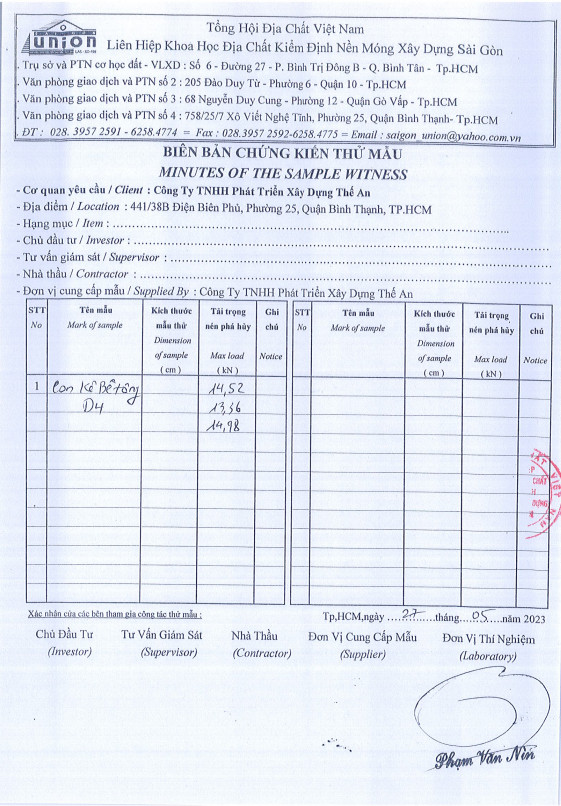 union
Tổng Hội Địa Chất Việt Nam
Liên Hiệp Khoa Học Địa Chất Kiểm Định Nền Móng Xây Dựng Sài Gòn
. Trụ sở và PTN cơ học đất - VLXD : Số 6 - Đường 27 - P. Bình Trị Đông B - Q. Bình Tân - Tp.HCM
. Văn phòng giao dịch và PTN số 2 : 205 Đào Duy Từ - Phường 6 - Quận 10 - Tp.HCM
. Văn phòng giao dịch và PTN số 3 : 68 Nguyễn Duy Cung - Phường 12 - Quận Gò Vấp - Tp.HCM
. Văn phòng giao dịch và PTN số 4 : 758/25/7 Xô Viết Nghệ Tĩnh, Phường 25, Quận Bình Thạnh- Tp.HCM
. ĐT : 028. 3957 2591 - 6258.4774 = Fax : 028.3957 2592-6258.4775 = Email : saigon_union@yahoo.com.vn
BIÊN BẢN CHỨNG KIẾN THỬ MẪU
MINUTES OF THE SAMPLE WITNESS
- Cơ quan yêu cầu / Client : Công Ty TNHH Phát Triển Xây Dựng Thế An
- Địa điểm / Location : 441/38B Điện Biên Phủ, Phường 25, Quận Bình Thạnh, TP.HCM
- Hạng mục / Item :
- Chủ đầu tư / Investor :
- Tư vấn giám sát / Supervisor :
- Nhà thầu / Contractor :
- Đơn vị cung cấp mẫu / Supplied By : Công Ty TNHH Phát Triển Xây Dựng Thế An
STT Tên mẫu Kích thước Tải trọng Ghi STT Tên mẫu Kích thước Tải trọng Ghi
No Mark of sample mẫu thử nén phá hủy chú No Mark of sample mẫu thử nén phá hủy chú
Dimension Dimension
of sample Max load Notice of sample Max load Notice
( cm ) ( kN ) ( cm ) ( kN )
1 Con Kê Bê tông 14,52
D4 13,36
14,98
ĐỊA CHẤT VIỆT NAM
CHẤT
DỰNG
Xác nhận của các bên tham gia công tác thử mẫu : Tp,HCM,ngày 27 tháng 05 năm 2023
Chủ Đầu Tư Tư Vấn Giám Sát Nhà Thầu Đơn Vị Cung Cấp Mẫu Đơn Vị Thí Nghiệm
(Investor) (Supervisor) (Contractor) (Supplier) (Laboratory)
Phạm Văn Nin